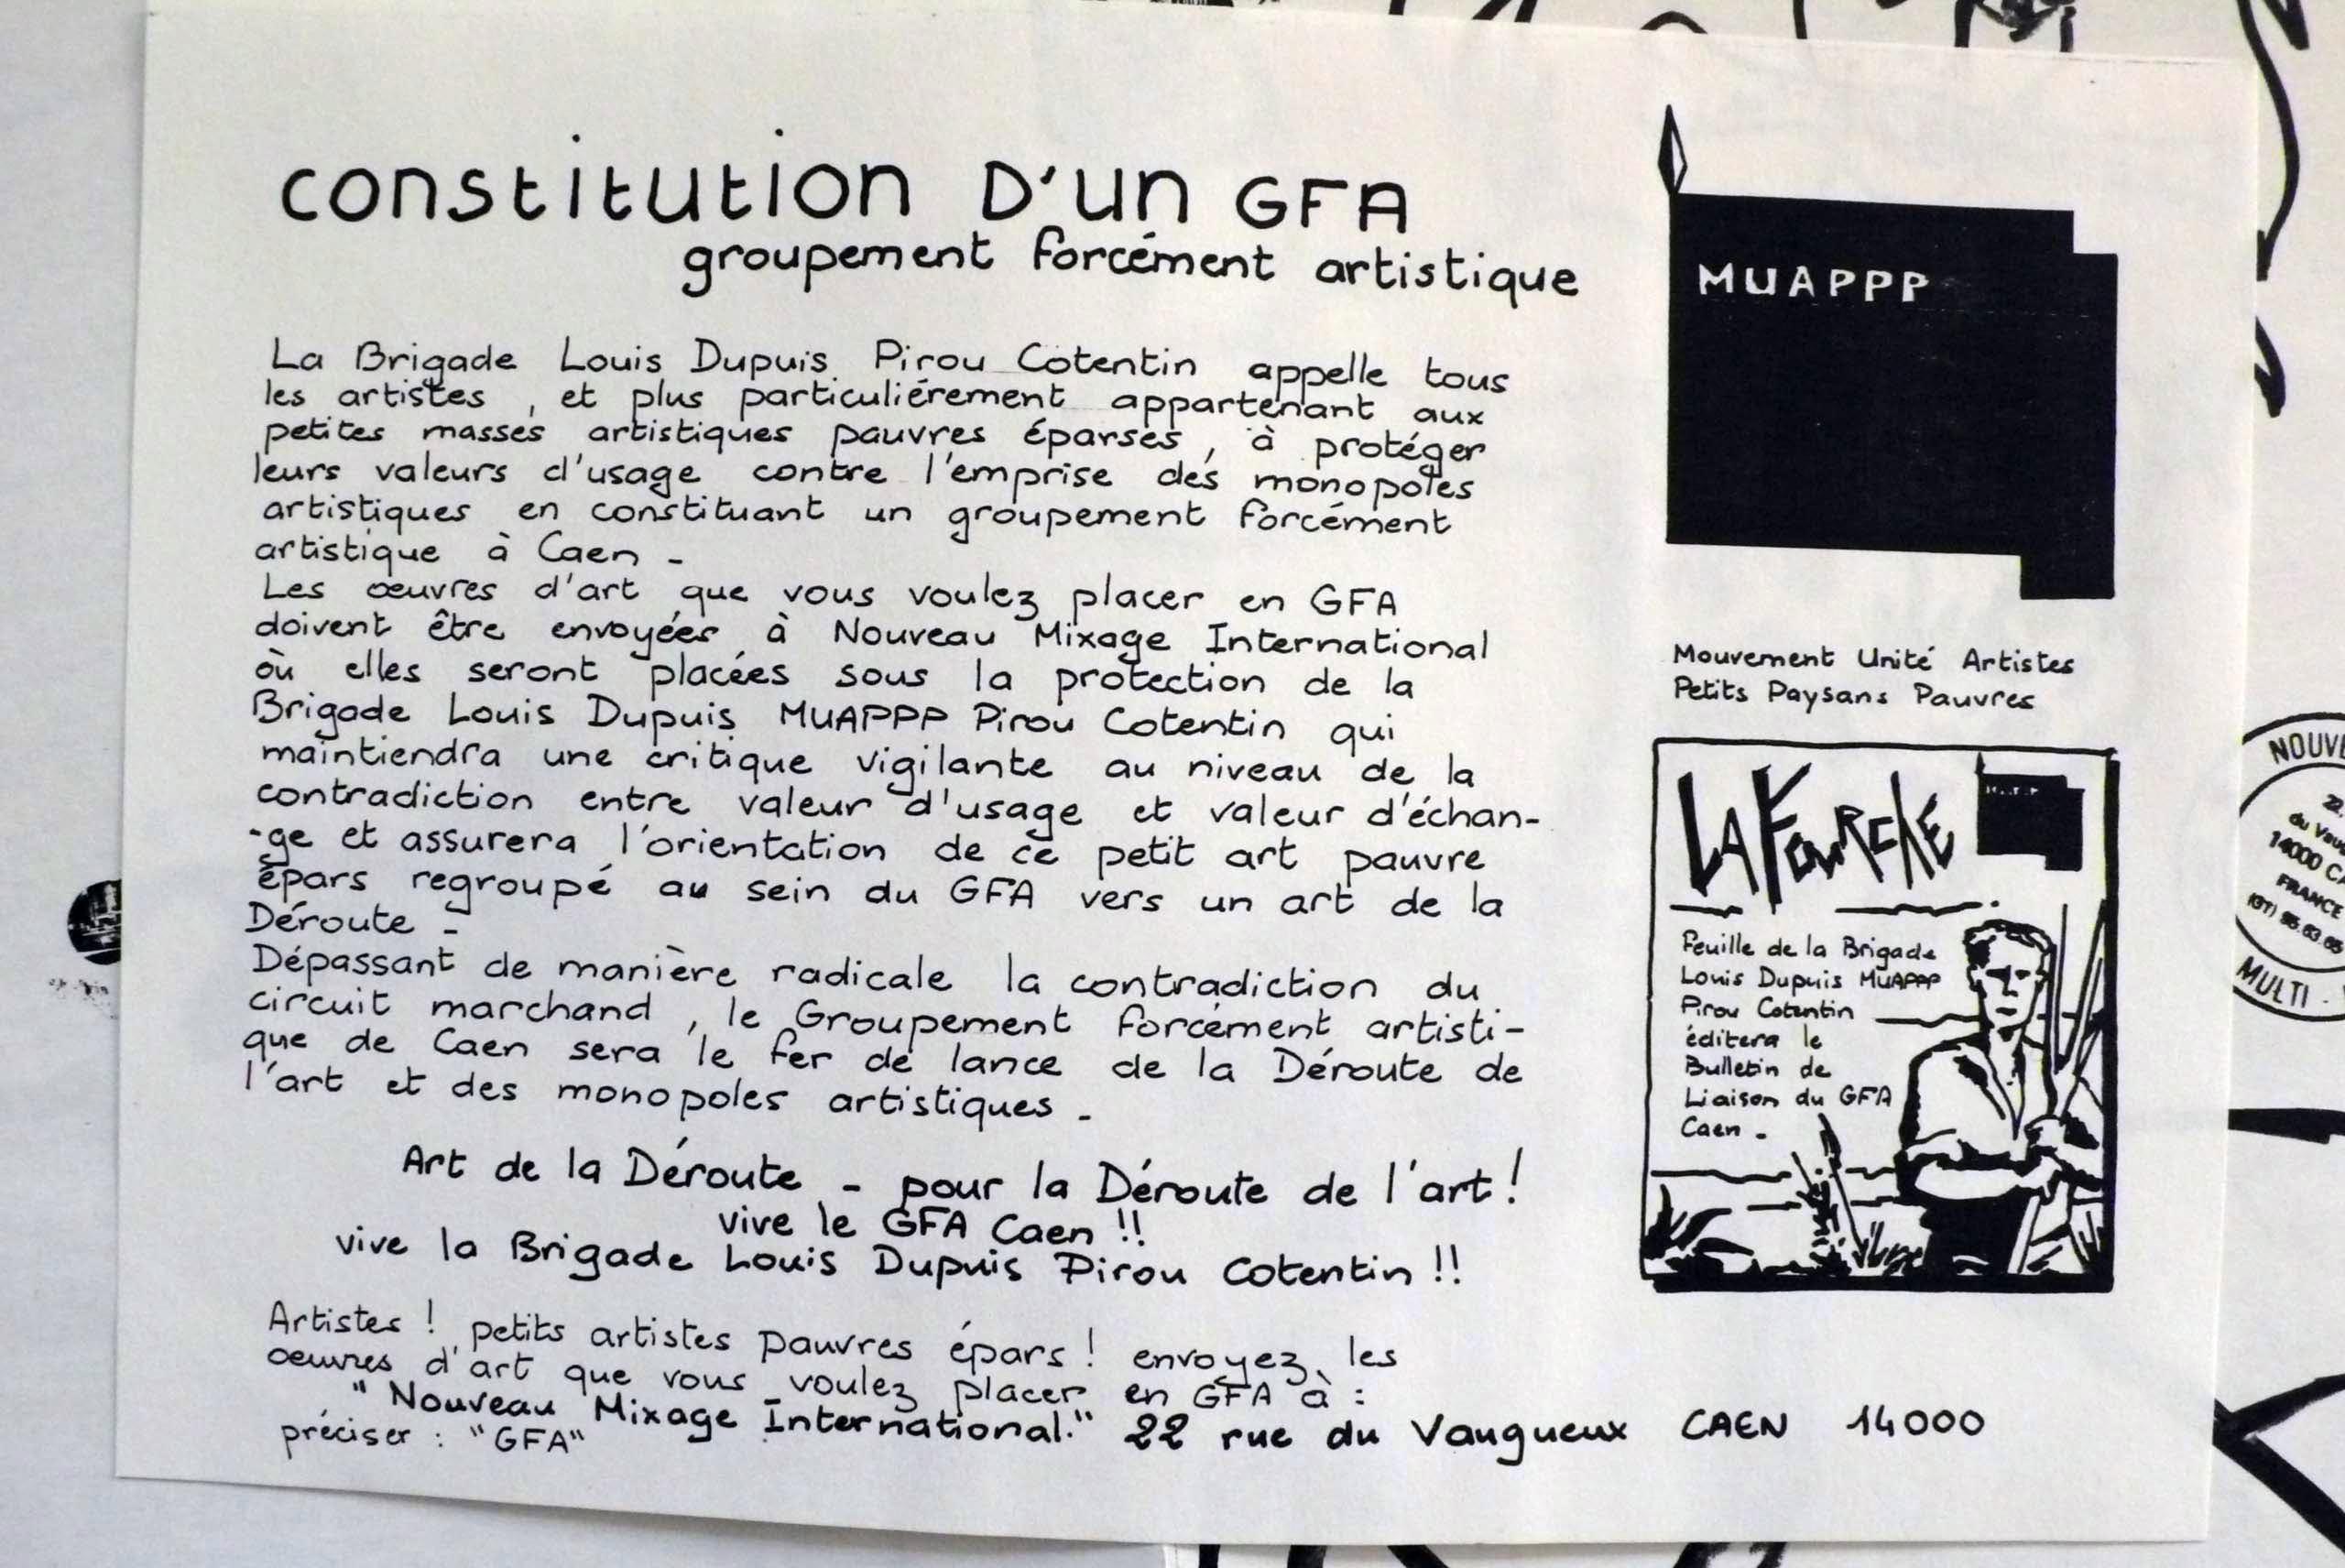 constitution D'un GFA
groupement forcément artistique
La Brigade Louis Dupuis Pirou Cotentin appelle tous
les artistes , et plus particuliérement appartenant aux
petites masses artistiques pauvres éparses , à protéger
leurs valeurs d'usage contre l'emprise des monopoles
artistiques en constituant un groupement forcément
artistique à Caen -
Les œuvres d'art que vous voulez placer en GFA
doivent être envoyées à Nouveau Mixage International
où elles seront placées sous la protection de la
Brigade Louis Dupuis MUAPPP Pirou Cotentin qui
maintiendra une critique vigilante au niveau de la
contradiction entre valeur d'usage et valeur d'échan-
-ge et assurera l'orientation de ce petit art pauvre
épars regroupé au sein du GFA vers un art de la
Déroute -
Dépassant de manière radicale la contradiction du
circuit marchand , le Groupement forcément artisti-
que de Caen sera le fer de lance de la Déroute de
l'art et des monopoles artistiques -
Art de la Déroute - pour la Déroute de l'art !
vive le GFA Caen !!
vive la Brigade Louis Dupuis Pirou Cotentin !!
Artistes ! petits artistes pauvres épars ! envoyez les
oeuvres d'art que vous voulez placer en GFA à :
"Nouveau Mixage International." 22 rue du Vaugueux CAEN 14000
préciser : "GFA"
MUAPPP
Mouvement Unité Artistes
Petits Paysans Pauvres
LA FOURCHE
Feuille de la Brigade
Louis Dupuis MUAPPP
Pirou Cotentin
éditera le
Bulletin de
Liaison du GFA
Caen -
14000
FRANCE
MULTI -